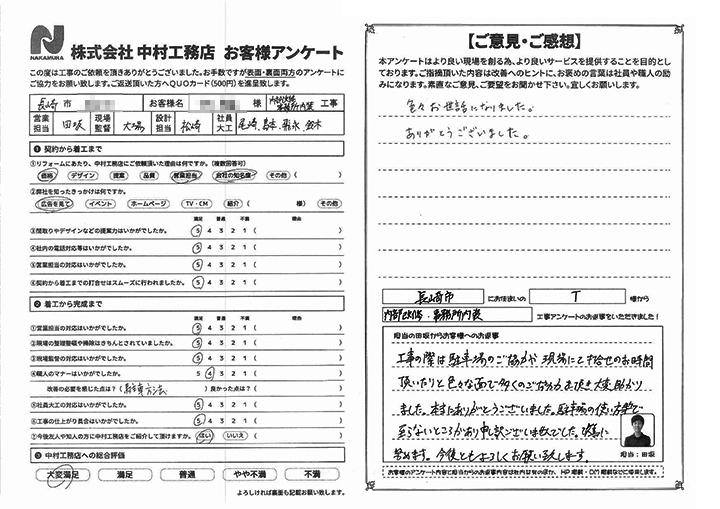 NAKAMURA
株式会社 中村工務店 お客様アンケート
この度は工事のご依頼を頂きありがとうございました。お手数ですが表面・裏面両方のアンケートに
ご協力をお願い致します。ご返送頂いた方へQUOカード(500円)を進呈致します。
長崎 市 お客様名 様 内部改修 事務所内装 工事
営業担当 田坂 現場監督 大場 設計担当 松崎 社員大工
❶ 契約から着工まで
①リフォームにあたり、中村工務店にご依頼頂いた理由は何ですか。(複数回答可)
価格 デザイン 提案 品質 営業担当 会社の知名度 その他 ( )
②弊社を知ったきっかけは何ですか。
広告を見て イベント ホームページ TV・CM 紹介 ( 様) その他
満足 普通 不満 理由
③間取りやデザインなどの提案力はいかがでしたか。 5 4 3 2 1 ( )
④社内の電話対応等はいかがでしたか。 5 4 3 2 1 ( )
⑤営業担当の対応はいかがでしたか。 5 4 3 2 1 ( )
⑥契約から着工までの打合せはスムーズに行われましたか。 5 4 3 2 1 ( )
❷ 着工から完成まで
満足 普通 不満 理由
①営業担当の対応はいかがでしたか。 5 4 3 2 1 ( )
②現場の整理整頓や掃除はきちんとされていましたか。 5 4 3 2 1 ( )
③現場監督の対応はいかがでしたか。 5 4 3 2 1 ( )
④職人のマナーはいかがでしたか。 5 4 3 2 1 ( )
改善の必要を感じた点は?( 駐車方法 ) 良かった点は?( )
⑤社員大工の対応はいかがでしたか。 5 4 3 2 1 ( )
⑥工事の仕上がり具合はいかがでしたか。 5 4 3 2 1 ( )
⑦今後友人や知人の方に中村工務店をご紹介して頂けますか。 はい いいえ ( )
❸ 中村工務店への総合評価
大変満足 満足 普通 やや不満 不満
よろしければ裏面も記載お願い致します。
【ご意見・ご感想】
本アンケートはより良い現場を創る為、より良いサービスを提供することを目的とし
ております。ご指摘頂いた内容は改善へのヒントに、お褒めの言葉は社員や職人の励
みになります。素直な意見、ご要望をお聞かせ下さい。宜しくお願いします。
色々お世話になりました。
ありがとうございました。
長崎市 にお住まいの T 様から
内部改修・事務所内装 工事アンケートのお返事をいただきました!
担当の田坂からお客様へのお返事
工事の際は駐車場のご協力や現場にて打合せのお時間
頂いたりと色々な面で多くのご協力お頂き大変助かり
ました。本当にありがとうございました。駐車場の使い方等で
至らないところがあり申訳ございませんでした。改善に
努めます。今後ともよろしくお願い致します。
担当:田坂